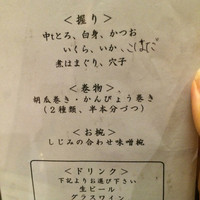 ＜握り＞
中とろ、白身、かつお
いくら、いか、こはだ
煮はまぐり、穴子
＜巻物＞
胡瓜巻き・かんぴょう巻き
（２種類、半本分づつ）
＜お椀＞
しじみの合わせ味噌椀
＜ドリンク＞
下記よりお選び下さい
生ビール
グラスワイン